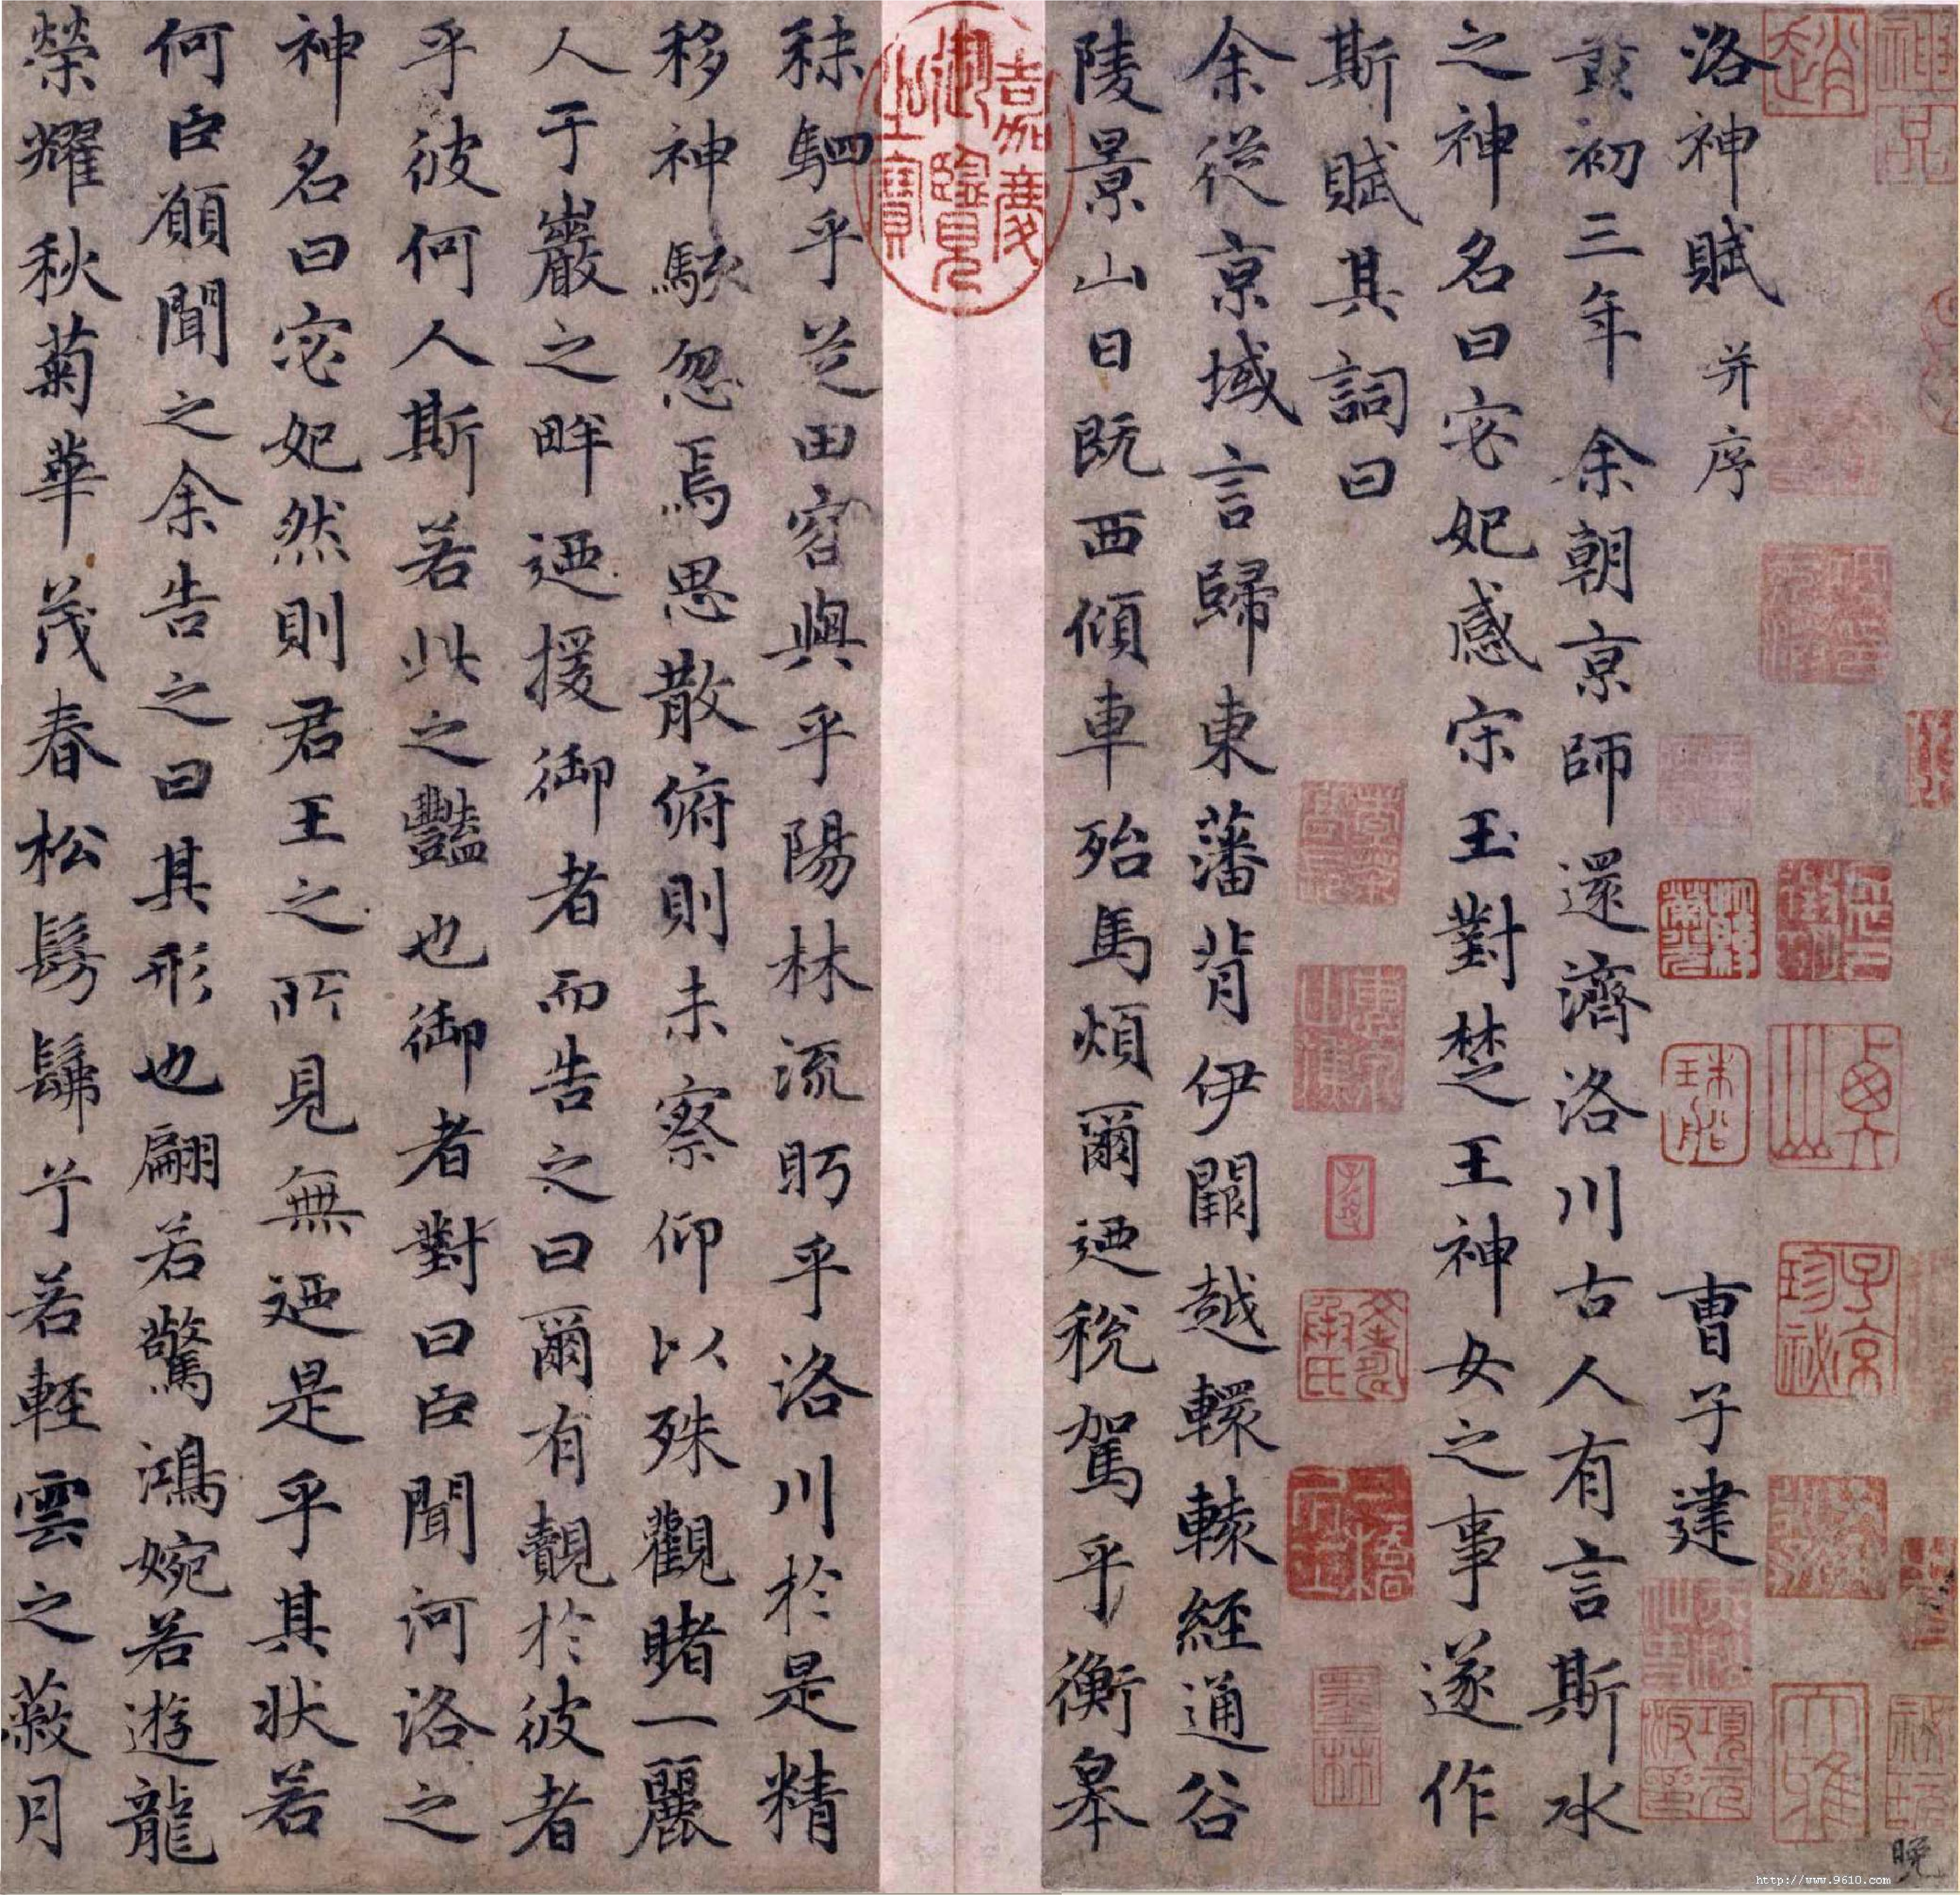 洛神賦 并序 曹子建
黃初三年余朝京師還濟洛川古人有言斯水
之神名曰宓妃感宋玉對楚王神女之事遂作
斯賦其詞曰
余從京域言歸東藩背伊闕越轘轅經通谷
陵景山日既西傾車殆馬煩爾迺稅駕乎蘅皋
秣駟乎芝田容與乎陽林流眄乎洛川於是精
移神駭忽焉思散俯則未察仰以殊觀睹一麗
人于巖之畔迺援御者而告之曰爾有覿於彼者
乎彼何人斯若此之豔也御者對曰臣聞河洛之
神名曰宓妃然則君王之所見無迺是乎其狀若
何臣願聞之余告之曰其形也翩若驚鴻婉若遊龍
榮耀秋菊華茂春松髣髴兮若輕雲之蔽月
嘉慶御覽之寶
趙
珠船
子京珍祕
墨林
大雅
晚
http://www.9610.com